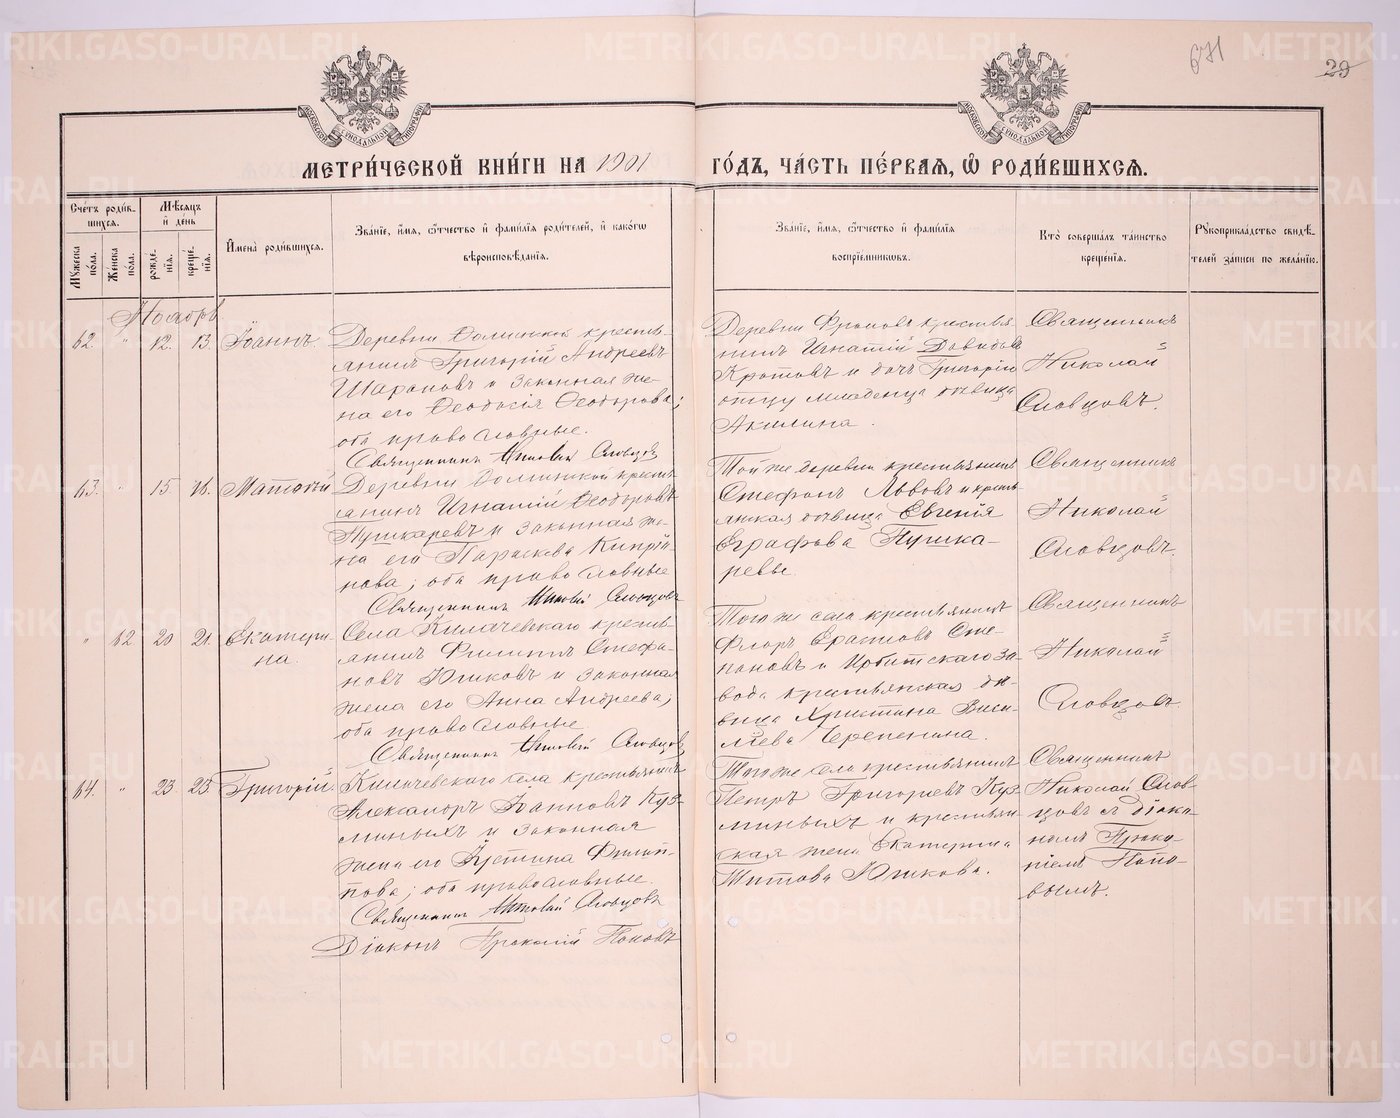 671
29
МЕТРИ́ЧЕСКОЙ КНИ́ГИ НА 1901 ГО́ДЪ, ЧА́СТЬ ПЕ́РВАѦ, Ѡ҆ РОДИ́ВШИХСѦ.
Сче́тъ роди́в-
шихсѧ.
Мꙋ́жеска по́ла.
Же́нска по́ла.
Мѣ́сѧцъ и҆ де́нь
рожде́нїѧ.
креще́нїѧ.
И҆мена̀ роди́вшихсѧ.
Зва́нїе, и҆́мѧ, ѻ҆́тчество и҆ фами́лїѧ роди́телей, и҆ како́гѡ
вѣроисповѣ́данїѧ.
Зва́нїе, и҆́мѧ, ѻ҆́тчество и҆ фами́лїѧ
воспрїе́мникѡвъ.
Кто̀ соверша́лъ та́инство
креще́нїѧ.
Рꙋкоприкла́дство свидѣ́-
телей за́писи по жела́нїю.
Ноябрь
62. " 12. 13. Іоаннъ.
Деревни Боминской кресть-
янинъ Григорій Андреевъ
Шароновъ и законная же-
на его Ѳеодосія Ѳеодорова;
оба православные.
Священникъ Николай Словцовъ
Деревни Фроновъ крестья-
нинъ Игнатій Давидовъ
Кротовъ и дочь Григорія
отцу младенца дѣвица
Акилина.
Священникъ
Николай
Словцовъ.
63. " 15. 16. Матѳей
Деревни Боминской кресть-
янинъ Игнатій Ѳеодоровъ
Пушкаревъ и законная же-
на его Параскева Кипрія-
нова; оба православные
Священникъ Николай Словцовъ
Той же деревни крестьянинъ
Стефанъ Львовъ и кресть-
янская дѣвица Евгенія
Еграфова Пушка-
ревы.
Священникъ
Николай
Словцовъ.
" 62 20 21. Екатери-
на.
Села Килачевскаго кресть-
янинъ Филиппъ Стефа-
новъ Юшковъ и законная
жена его Анна Андреева;
оба православные
Священникъ Николай Словцовъ
Того же села крестьянинъ
Флоръ Ерастовъ Сте-
пановъ и Ирбитскаго за-
вода крестьянская дѣ-
вица Христина Васи-
льева Черепенина.
Священникъ
Николай
Словцовъ.
64. " 23. 25. Григорій.
Килачевскаго села крестьянинъ
Александръ Іоанновъ Куз-
миныхъ и законная
жена его Іустина Филип-
пова; оба православные.
Священникъ Николай Словцовъ
Діаконъ Прокопій Поповъ
Того же села крестьянинъ
Петръ Григорьевъ Куз-
миныхъ и крестьян-
ская жена Екатерина
Титова Юшкова.
Священникъ
Николай Слов-
цовъ съ діако-
номъ Проко-
піемъ Попо-
вымъ.